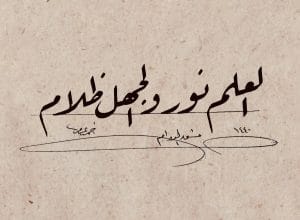 العلم نور والجهل ظلام
١٤٤٠